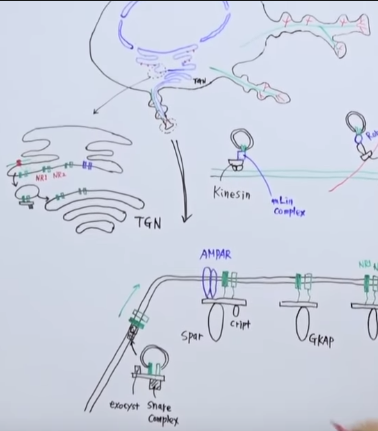 TGN
NR1 NR2
TGN
Kinesin
mLin
Complex
AMPAR
Spar
Cript
GKAP
NR1
exocyst
Snare
Complex